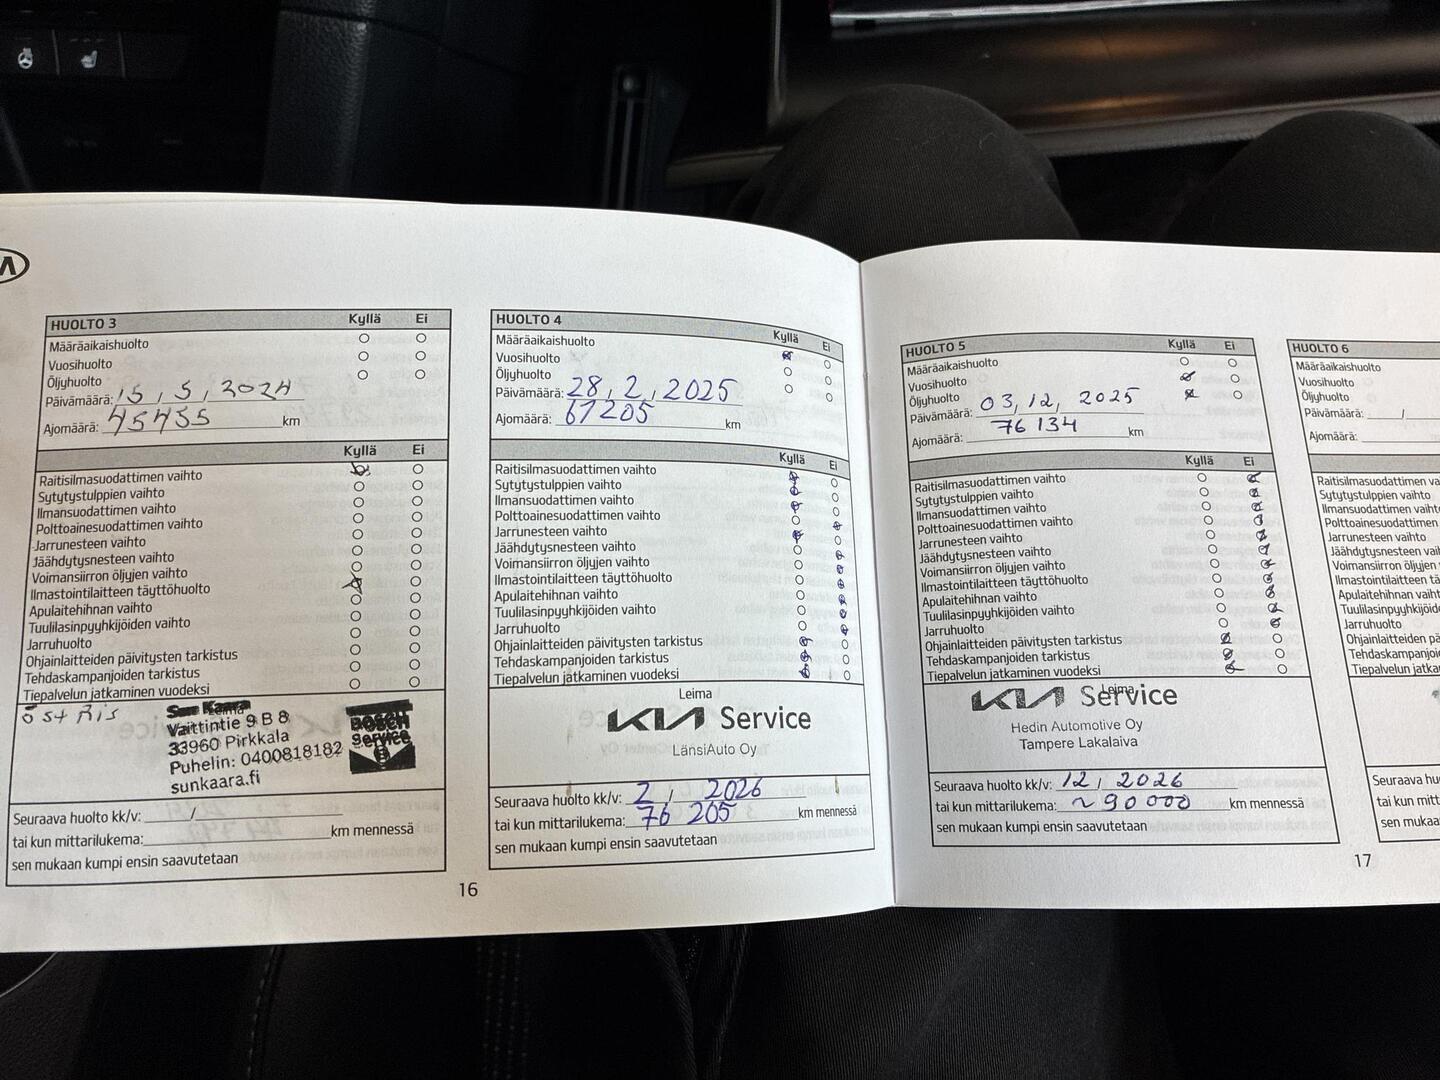 HUOLTO 3 Kyllä Ei
Määräaikaishuolto
Vuosihuolto
Öljyhuolto
Päivämäärä: 15, 5, 2024
Ajomäärä: 45455 km
Kyllä Ei
Raitisilmasuodattimen vaihto
Sytytystulppien vaihto
Ilmansuodattimen vaihto
Polttoainesuodattimen vaihto
Jarrunesteen vaihto
Jäähdytysnesteen vaihto
Voimansiirron öljyjen vaihto
Ilmastointilaitteen täyttöhuolto
Apulaitehihnan vaihto
Tuulilasinpyyhkijöiden vaihto
Jarruhuolto
Ohjainlaitteiden päivitysten tarkistus
Tehdaskampanjoiden tarkistus
Tiepalvelun jatkaminen vuodeksi
Leima
Vaittintie 9 B 8
33960 Pirkkala
Puhelin: 0400818182
sunkaara.fi
BOSCH
Service
Seuraava huolto kk/v: /
tai kun mittarilukema: km mennessä
sen mukaan kumpi ensin saavutetaan
HUOLTO 4 Kyllä Ei
Määräaikaishuolto
Vuosihuolto
Öljyhuolto
Päivämäärä: 28, 2, 2025
Ajomäärä: 61205 km
Kyllä Ei
Raitisilmasuodattimen vaihto
Sytytystulppien vaihto
Ilmansuodattimen vaihto
Polttoainesuodattimen vaihto
Jarrunesteen vaihto
Jäähdytysnesteen vaihto
Voimansiirron öljyjen vaihto
Ilmastointilaitteen täyttöhuolto
Apulaitehihnan vaihto
Tuulilasinpyyhkijöiden vaihto
Jarruhuolto
Ohjainlaitteiden päivitysten tarkistus
Tehdaskampanjoiden tarkistus
Tiepalvelun jatkaminen vuodeksi
Leima
KIA Service
LänsiAuto Oy
Seuraava huolto kk/v: 2 / 2026
tai kun mittarilukema: 76 205 km mennessä
sen mukaan kumpi ensin saavutetaan
16
HUOLTO 5 Kyllä Ei
Määräaikaishuolto
Vuosihuolto
Öljyhuolto
Päivämäärä: 03, 12, 2025
Ajomäärä: 76 134 km
Kyllä Ei
Raitisilmasuodattimen vaihto
Sytytystulppien vaihto
Ilmansuodattimen vaihto
Polttoainesuodattimen vaihto
Jarrunesteen vaihto
Jäähdytysnesteen vaihto
Voimansiirron öljyjen vaihto
Ilmastointilaitteen täyttöhuolto
Apulaitehihnan vaihto
Tuulilasinpyyhkijöiden vaihto
Jarruhuolto
Ohjainlaitteiden päivitysten tarkistus
Tehdaskampanjoiden tarkistus
Tiepalvelun jatkaminen vuodeksi
Leima
KIA Service
Hedin Automotive Oy
Tampere Lakalaiva
Seuraava huolto kk/v: 12, 2026
tai kun mittarilukema: ~90 000 km mennessä
sen mukaan kumpi ensin saavutetaan
HUOLTO 6
Määräaikaishuolto
Vuosihuolto
Öljyhuolto
Päivämäärä: /
Ajomäärä:
Raitisilmasuodattimen va
Sytytystulppien vaihto
Ilmansuodattimen vaihto
Polttoainesuodattimen
Jarrunesteen vaihto
Jäähdytysnesteen vaih
Voimansiirron öljyjen
Ilmastointilaitteen tä
Apulaitehihnan vaihto
Tuulilasinpyyhkijöide
Jarruhuolto
Ohjainlaitteiden päiv
Tehdaskampanjoiden
Tiepalvelun jatka
Seuraava huo
tai kun mitta
sen muka
17